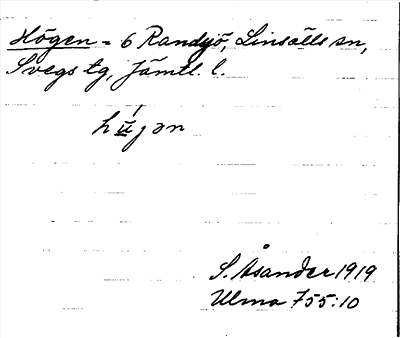 Högen = 6 Randsjö, Linsälls sn,
Svegs tg, Jämtl. l.
S. Åsander 1919
Ulma 755:10